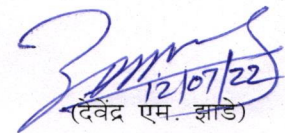 12/07/22
(देवेंद्र एम. झाडे)